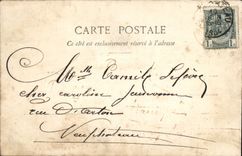 CARTE POSTALE
Ce côté est exclusivement réservé à l'adresse
Mlle Camille Lefèvre
chez Caroline
rue D'
Neufchateau